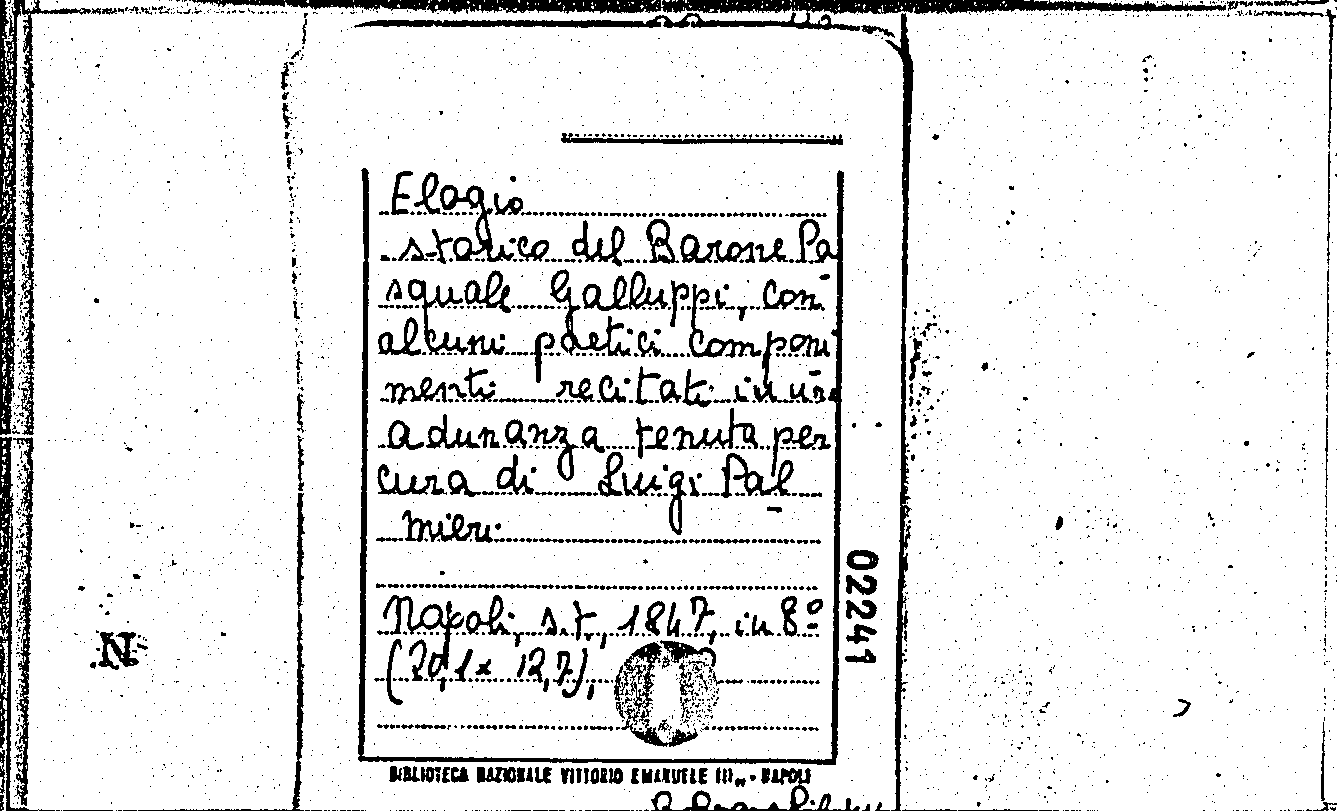 Elogio
storico del Barone Pa
squale Galluppi, con
alcuni poetici componi
menti recitati in una
adunanza tenuta per
cura di Luigi Pal
mieri
Napoli, s.t., 1847, in 8º
(20,1x 12,7),
02241
N
BIBLIOTECA NAZIONALE VITTORIO EMANUELE III„ - NAPOLI